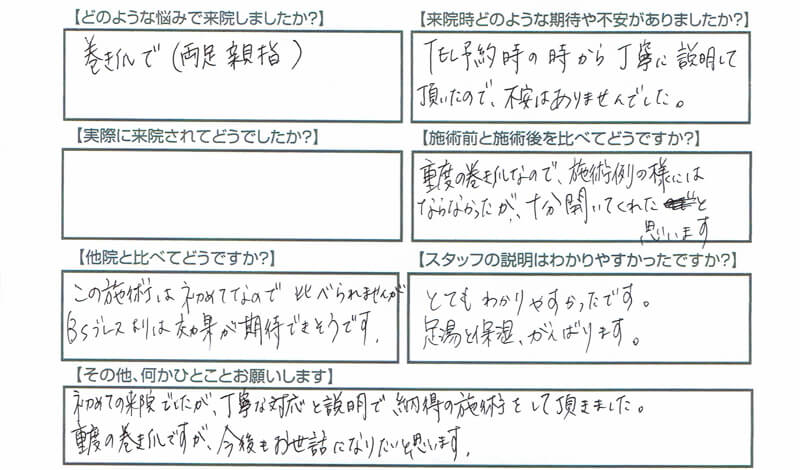 【どのような悩みで来院しましたか?】
巻き爪で(両足親指)
【来院時どのような期待や不安がありましたか?】
TEL予約時の時から丁寧に説明して
頂いたので、不安はありませんでした。
【実際に来院されてどうでしたか?】
【施術前と施術後を比べてどうですか?】
重度の巻き爪なので、施術例の様には
ならなかったが、十分開いてくれたと
思います
【他院と比べてどうですか?】
この施術は初めてなので比べられませんが
BSブレスよりは効果が期待できそうです。
【スタッフの説明はわかりやすかったですか?】
とてもわかりやすかったです。
足湯と保湿、がんばります。
【その他、何かひとことお願いします】
初めての来院でしたが、丁寧な対応と説明で、納得の施術をして頂きました。
重度の巻き爪ですが、今後もお世話になりたいと思います。